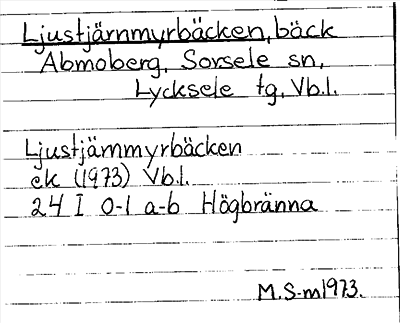 Ljustjärnmyrbäcken, bäck
Abmoberg, Sorsele sn,
Lycksele tg, Vb.l.
Ljustjärnmyrbäcken
ek (1973) Vb.l.
24 I 0-1 a-b Högbränna
M.S-m 1973.